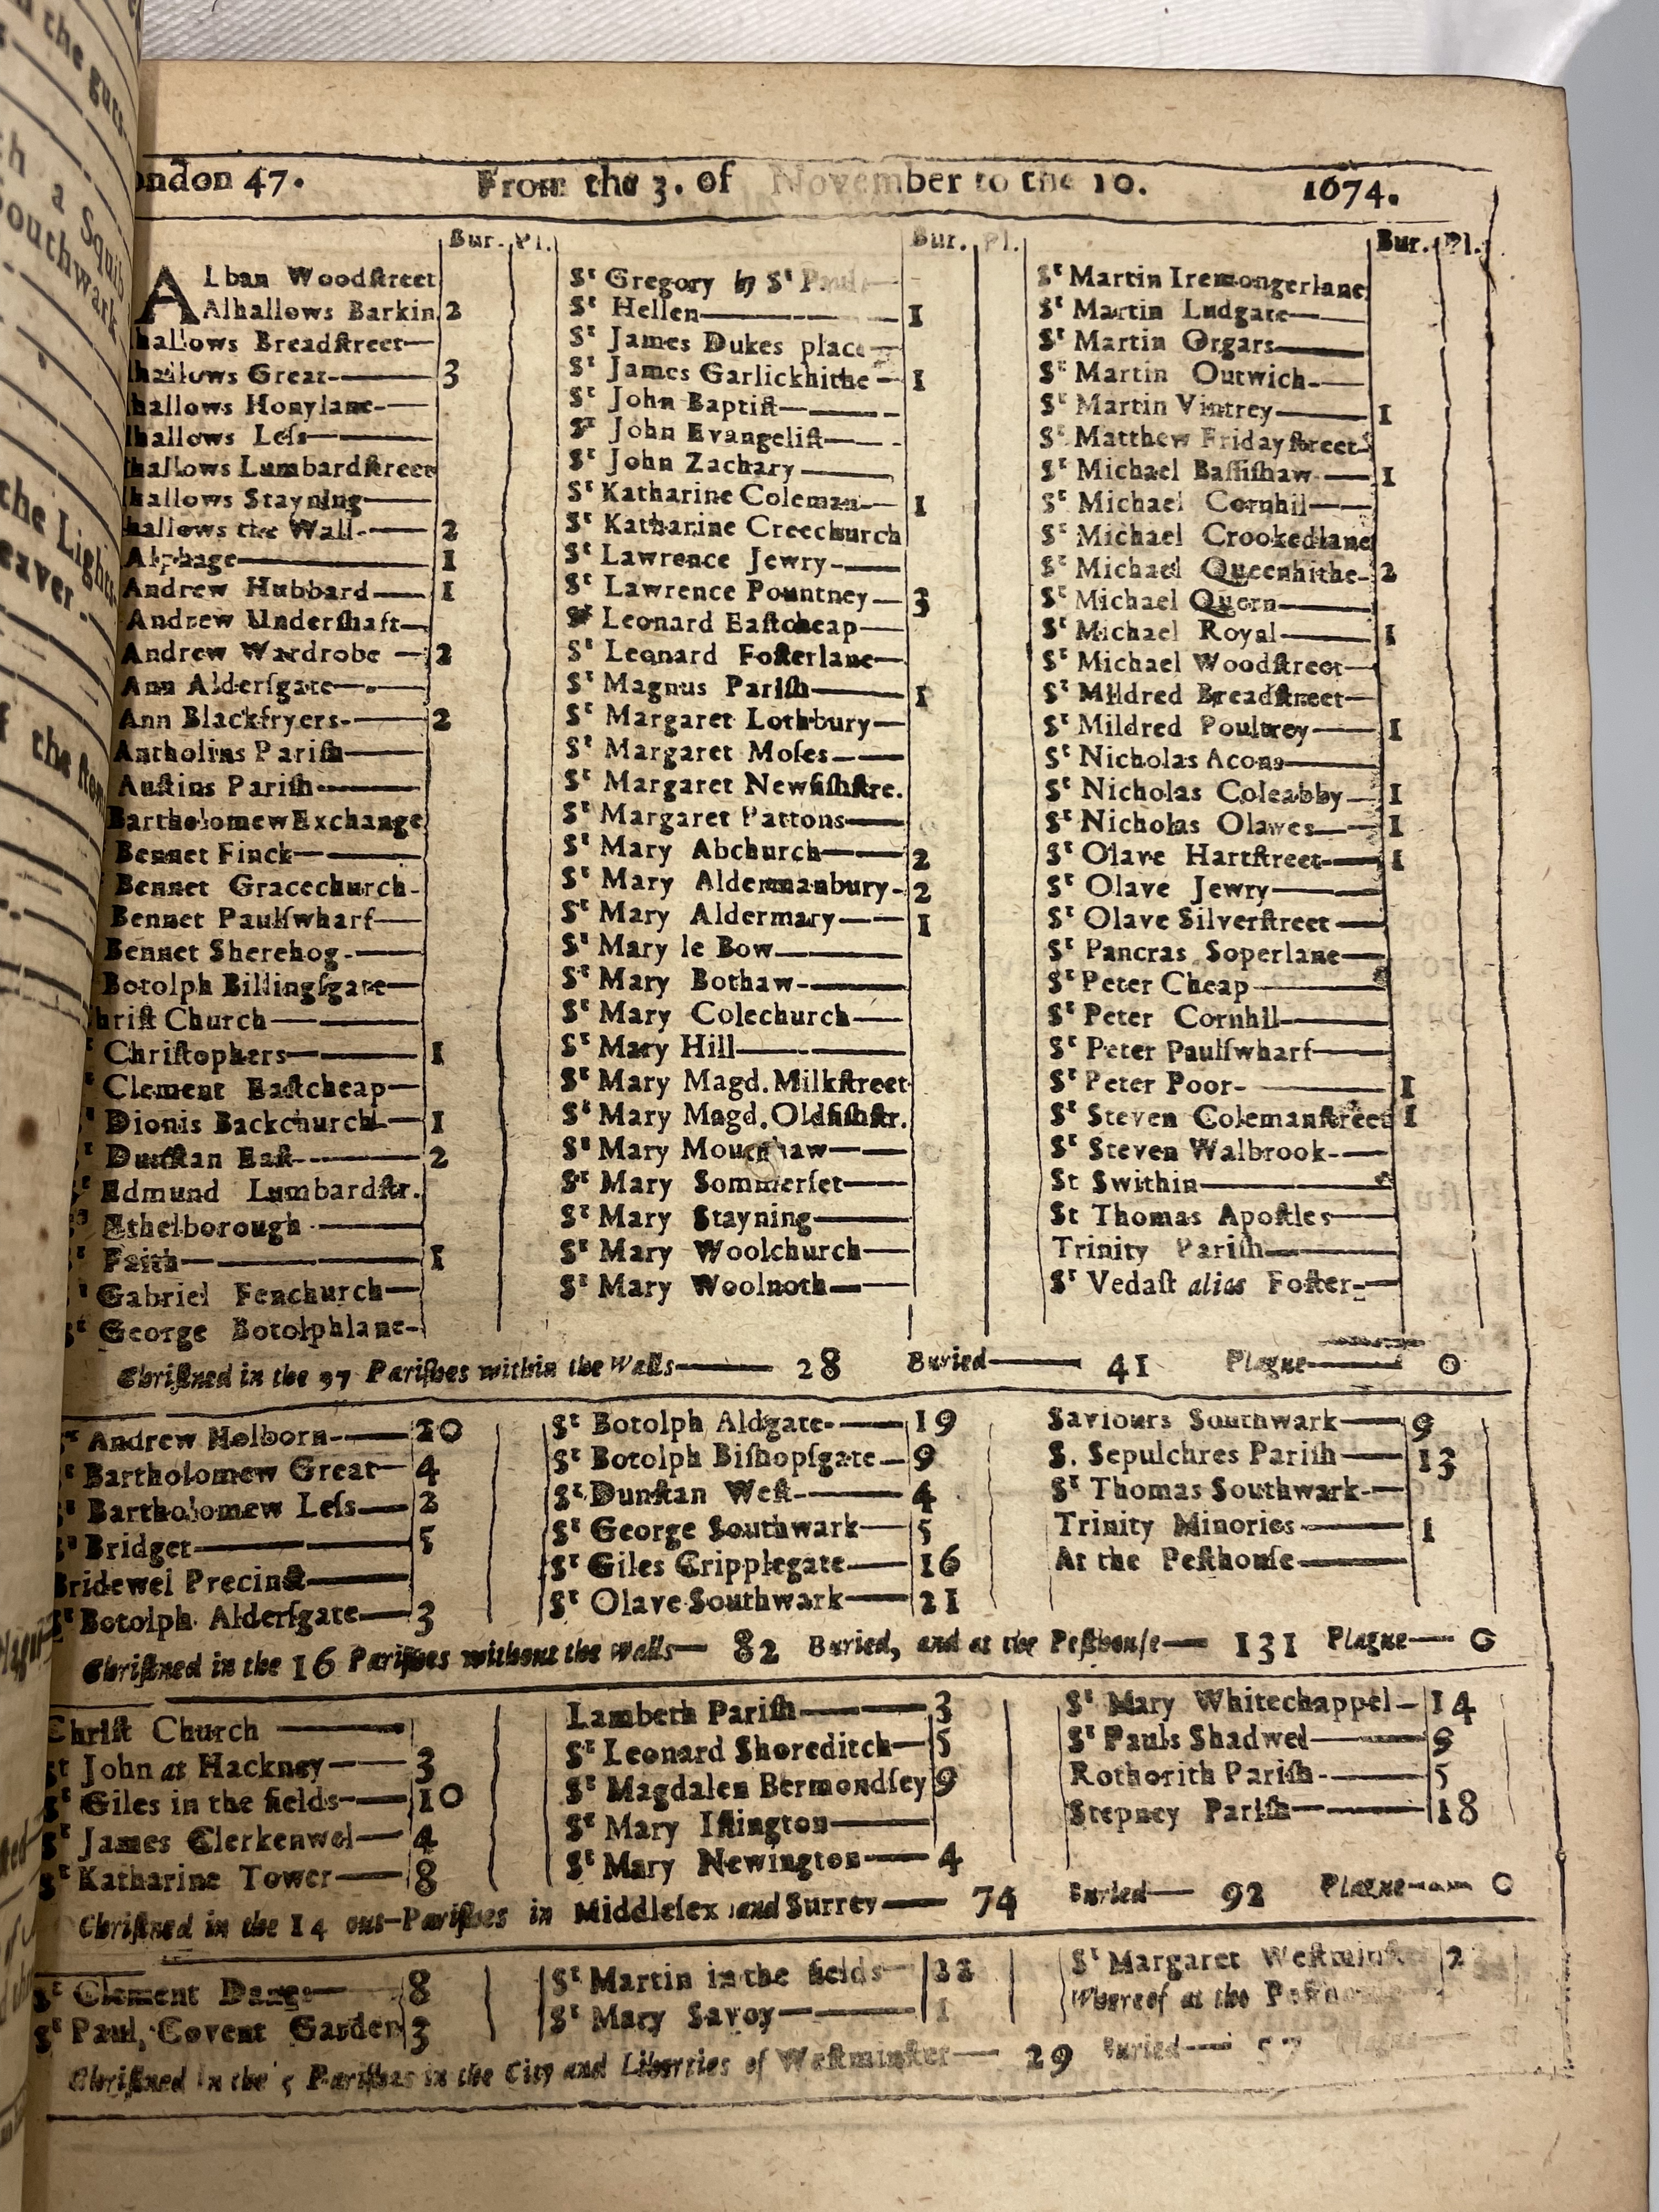 ondon 47. From the 3. of November to the 10. 1674.
Bur. Pl. Bur. Pl. Bur. Pl.
ALban Woodſtreet
Alhallows Barkin 2
hallows Breadſtreet
hallows Great 3
hallows Honylane
hallows Leſs
hallows Lumbardſtreet
hallows Stayning
hallows the Wall 2
Alphage 1
Andrew Hubbard 1
Andrew Underſhaft
Andrew Wardrobe 2
Ann Alderſgate
Ann Blackfryers 2
Antholins Pariſh
Auſtins Pariſh
Bartholomew Exchange
Bennet Finck
Bennet Gracechurch
Bennet Paulſwharf
Bennet Sherehog
Botolph Billingſgate
hriſt Church
Chriſtophers 1
Clement Eaſtcheap
Dionis Backchurch 1
Dunſtan Eaſt 2
Edmund Lumbardſtr.
Ethelborough
Faith 1
Gabriel Fenchurch
George Botolphlane
St Gregory by St Pauls
St Hellen 1
St James Dukes place
St James Garlickhithe 1
St John Baptiſt
St John Evangeliſt
St John Zachary
St Katharine Coleman 1
St Katharine Creechurch
St Lawrence Jewry
St Lawrence Pountney 3
St Leonard Eaſtcheap
St Leonard Foſterlane
St Magnus Pariſh 1
St Margaret Lothbury
St Margaret Moſes
St Margaret Newfiſhſtre.
St Margaret Pattons
St Mary Abchurch 2
St Mary Aldermanbury 2
St Mary Aldermary 1
St Mary le Bow
St Mary Bothaw
St Mary Colechurch
St Mary Hill
St Mary Magd. Milkſtreet
St Mary Magd. Oldfiſhſtr.
St Mary Mounthaw
St Mary Sommerſet
St Mary Stayning
St Mary Woolchurch
St Mary Woolnoth
St Martin Iremongerlane
St Martin Ludgate
St Martin Orgars
St Martin Outwich
St Martin Vintrey 1
St Matthew Fridayſtreet
St Michael Baſſiſhaw 1
St Michael Cornhil
St Michael Crookedlane
St Michael Queenhithe 2
St Michael Quern
St Michael Royal 1
St Michael Woodſtreet
St Mildred Breadſtreet
St Mildred Poultrey 1
St Nicholas Acons
St Nicholas Coleabby 1
St Nicholas Olawes 1
St Olave Hartſtreet 1
St Olave Jewry
St Olave Silverſtreet
St Pancras Soperlane
St Peter Cheap
St Peter Cornhil
St Peter Paulſwharf
St Peter Poor 1
St Steven Colemanſtreet 1
St Steven Walbrook
St Swithin
St Thomas Apoſtles
Trinity Pariſh
St Vedaſt alias Foſter
Chriſtned in the 97 Pariſhes within the Walls 28 Buried 41 Plague 0
St Andrew Holborn 20
St Bartholomew Great 4
St Bartholomew Leſs 2
St Bridget 5
Bridewel Precinct
St Botolph Alderſgate 3
St Botolph Aldgate 19
St Botolph Biſhopſgate 9
St Dunſtan Weſt 4
St George Southwark 5
St Giles Cripplegate 16
St Olave Southwark 21
Saviours Southwark 9
S. Sepulchres Pariſh 13
St Thomas Southwark
Trinity Minories 1
At the Peſthouſe
Chriſtned in the 16 Pariſhes without the Walls 82 Buried, and at the Peſthouſe 131 Plague 0
Chriſt Church
St John at Hackney 3
St Giles in the fields 10
St James Clerkenwel 4
St Katharine Tower 8
Lambeth Pariſh 3
St Leonard Shoreditch 5
St Magdalen Bermondſey 9
St Mary Iſlington
St Mary Newington 4
St Mary Whitechappel 14
St Pauls Shadwel 9
Rothorith Pariſh 5
Stepney Pariſh 18
Chriſtned in the 14 out-Pariſhes in Middleſex and Surrey 74 Buried 92 Plague 0
St Clement Danes 8
St Paul, Covent Garden 3
St Martin in the fields 22
St Mary Savoy 1
St Margaret Weſtminſter
Whereof at the Peſthouſe
Chriſtned in the 5 Pariſhes in the City and Liberties of Weſtminſter 29 Buried 57 Plague